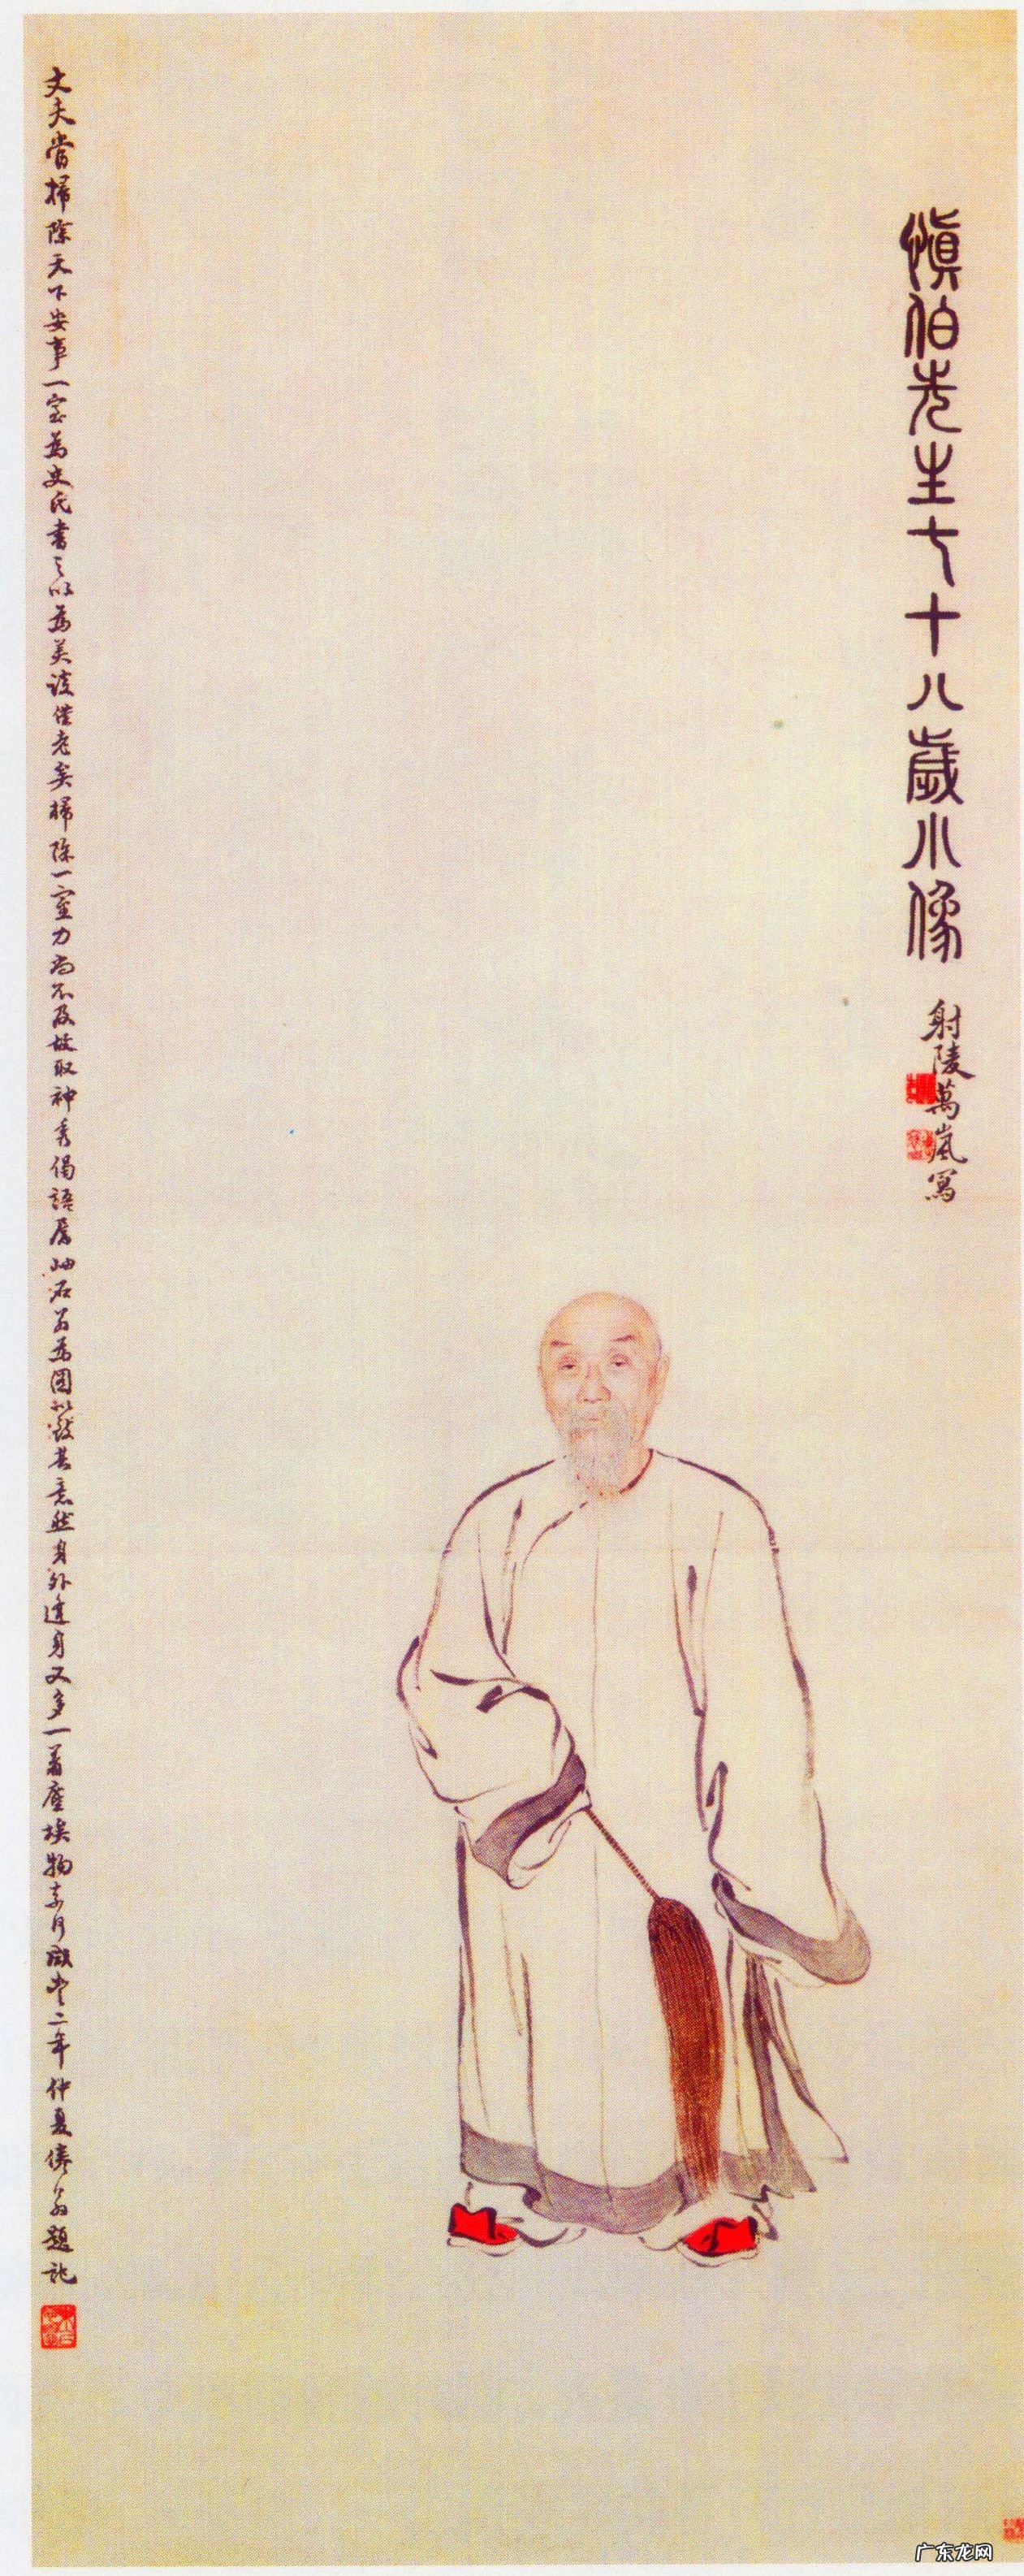 慎伯先生七十八歲小像
射陵萬嵐寫
丈夫當掃除天下安事一室為史氏書之以為美談僕老矣掃除一室力尚不及故取神秀偈語屬岫石翁為圖以發其意然身外違身又多一著塵埃物矣咸豐二年仲夏倦翁題記
广东龙网